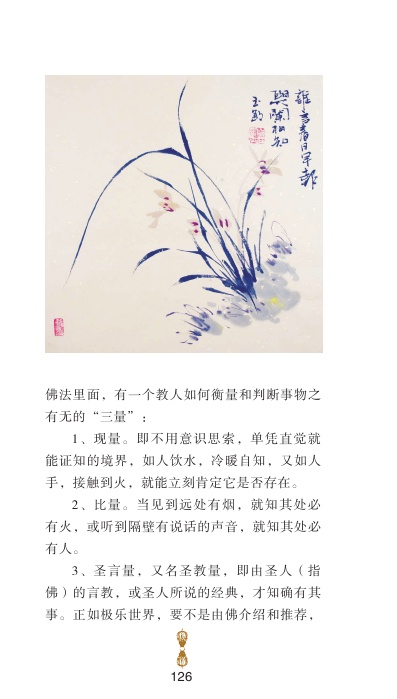 與蘭相知
玉
佛法里面，有一个教人如何衡量和判断事物之
有无的“三量”：
1、现量。即不用意识思索，单凭直觉就
能证知的境界，如人饮水，冷暖自知，又如人
手，接触到火，就能立刻肯定它是否存在。
2、比量。当见到远处有烟，就知其处必
有火，或听到隔壁有说话的声音，就知其处必
有人。
3、圣言量，又名圣教量，即由圣人（指
佛）的言教，或圣人所说的经典，才知确有其
事。正如极乐世界，要不是由佛介绍和推荐，
126